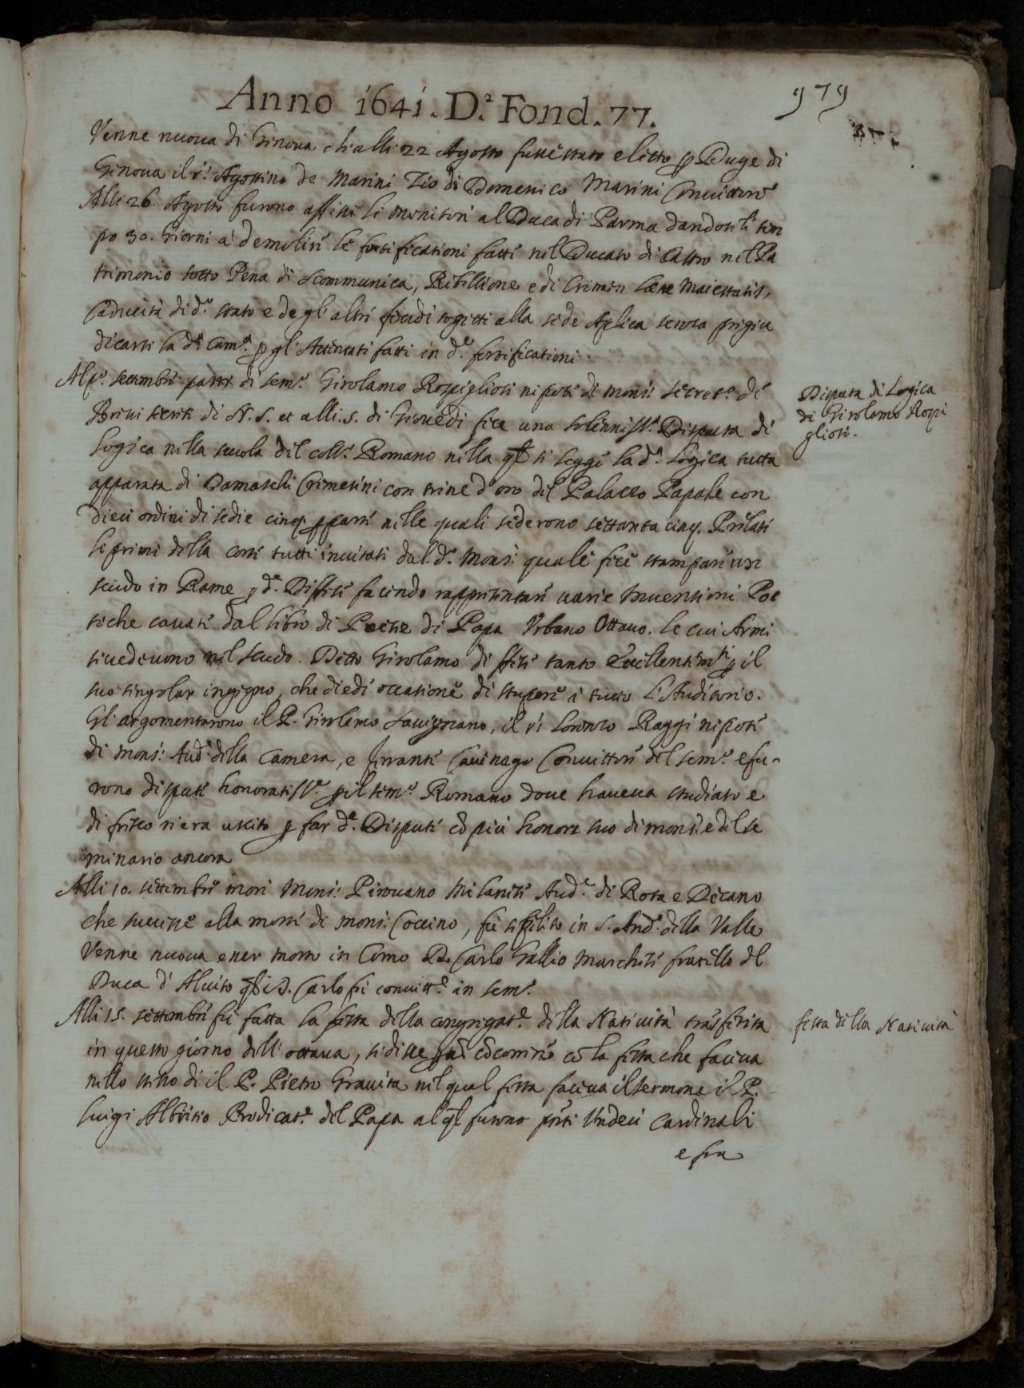 979
Anno 1641. D.ª Fond. 77.
Venne nuova di Genova ch'alli 22 Agosto fusse stato eletto p Duge di
Genova il s.r Agostino de Marini Zio di Domenico Marini Convittore
Alli 26 Agosto furono affissi li monitori al Duca di Parma dandosili tem
po 30. giorni a demolire le fortificationi fatte nel Ducato di Castro nel Pa
trimonio sotto Pena di scommunica, Ribellione e di Crimen Lese Maiestatis,
caducità di d.º stato e de gl'altri feudi sogetti alla sede Aplica senza pregiu
dicarsi la d.ª Cam.ª p gl'Attentati fatti in d.e fortificationi.
Al p.º settembre parti di sem.º Girolamo Rospigliosi nipote di mons.r secret.º de
Brevi secreti di N. S. et alli .5. di Giovedi fece una solenniss.ª Disputa di
Logica nella scuola del coll.º Romano nella qle si legge la d.ª Logica tutta
apparata di Damaschi Cremesini con trine d'oro del Palazzo Papale con
dieci ordini di sedie cinq. p parte nelle quali sederono settanta cinq. Prelati
li primi della corte tutti invitati dal d.º Mons.r quale fece stampare un
scudo in Rame p d.e Difese facendo rappresentare varie Inventioni Poe
tiche cavate dal libro di Poesie di Papa Urbano Ottavo. le cui Armi
si vedevono nel scudo. Detto Girolamo difese tanto eccellentem.te p il
suo singolar ingegno, che diede occasione di stupore a tutto L'Auditorio.
Gl'argomentarono il P. Girolamo Savignano, il s.r Lorenzo Raggi nipote
di mons.r Aud.r della Camera, e Ferrante Cavinago Convittori del sem.º e fu-
rono dispute honoratiss.e p il sem.º Romano dove haveva studiato e
di fresco n'era uscito p far d.e Dispute cõ più honore suo di mons.r e del se
minario ancora
Alli 10. settembre morì Mons.r Pirovano Milanese Aud.re di Rota e Decano
che successe alla morte di mons.r Coccino, fù sepelito in S. And.ª della Valle
Venne nuova esser morto in Como D. Carlo Gallio Marchese fratello del
Duca d'Alvito qsto D. Carlo fù convitt.e in sem.º
Alli 15. settembre fù fatta la festa della congregat.e della Natività trasferita
in questo giorno dell'ottava, si disse p nõ cõcorrere cõ la festa che faceva
nello stesso dì il P. Pietro Gravita nel qual festa faceva il sermone il P.
Luigi Albritio Predicat.e del Papa al ql furono pñti Undeci Cardinali
e fra
Disputa di Logica
di Girolamo Rospi
gliosi.
festa della Natività